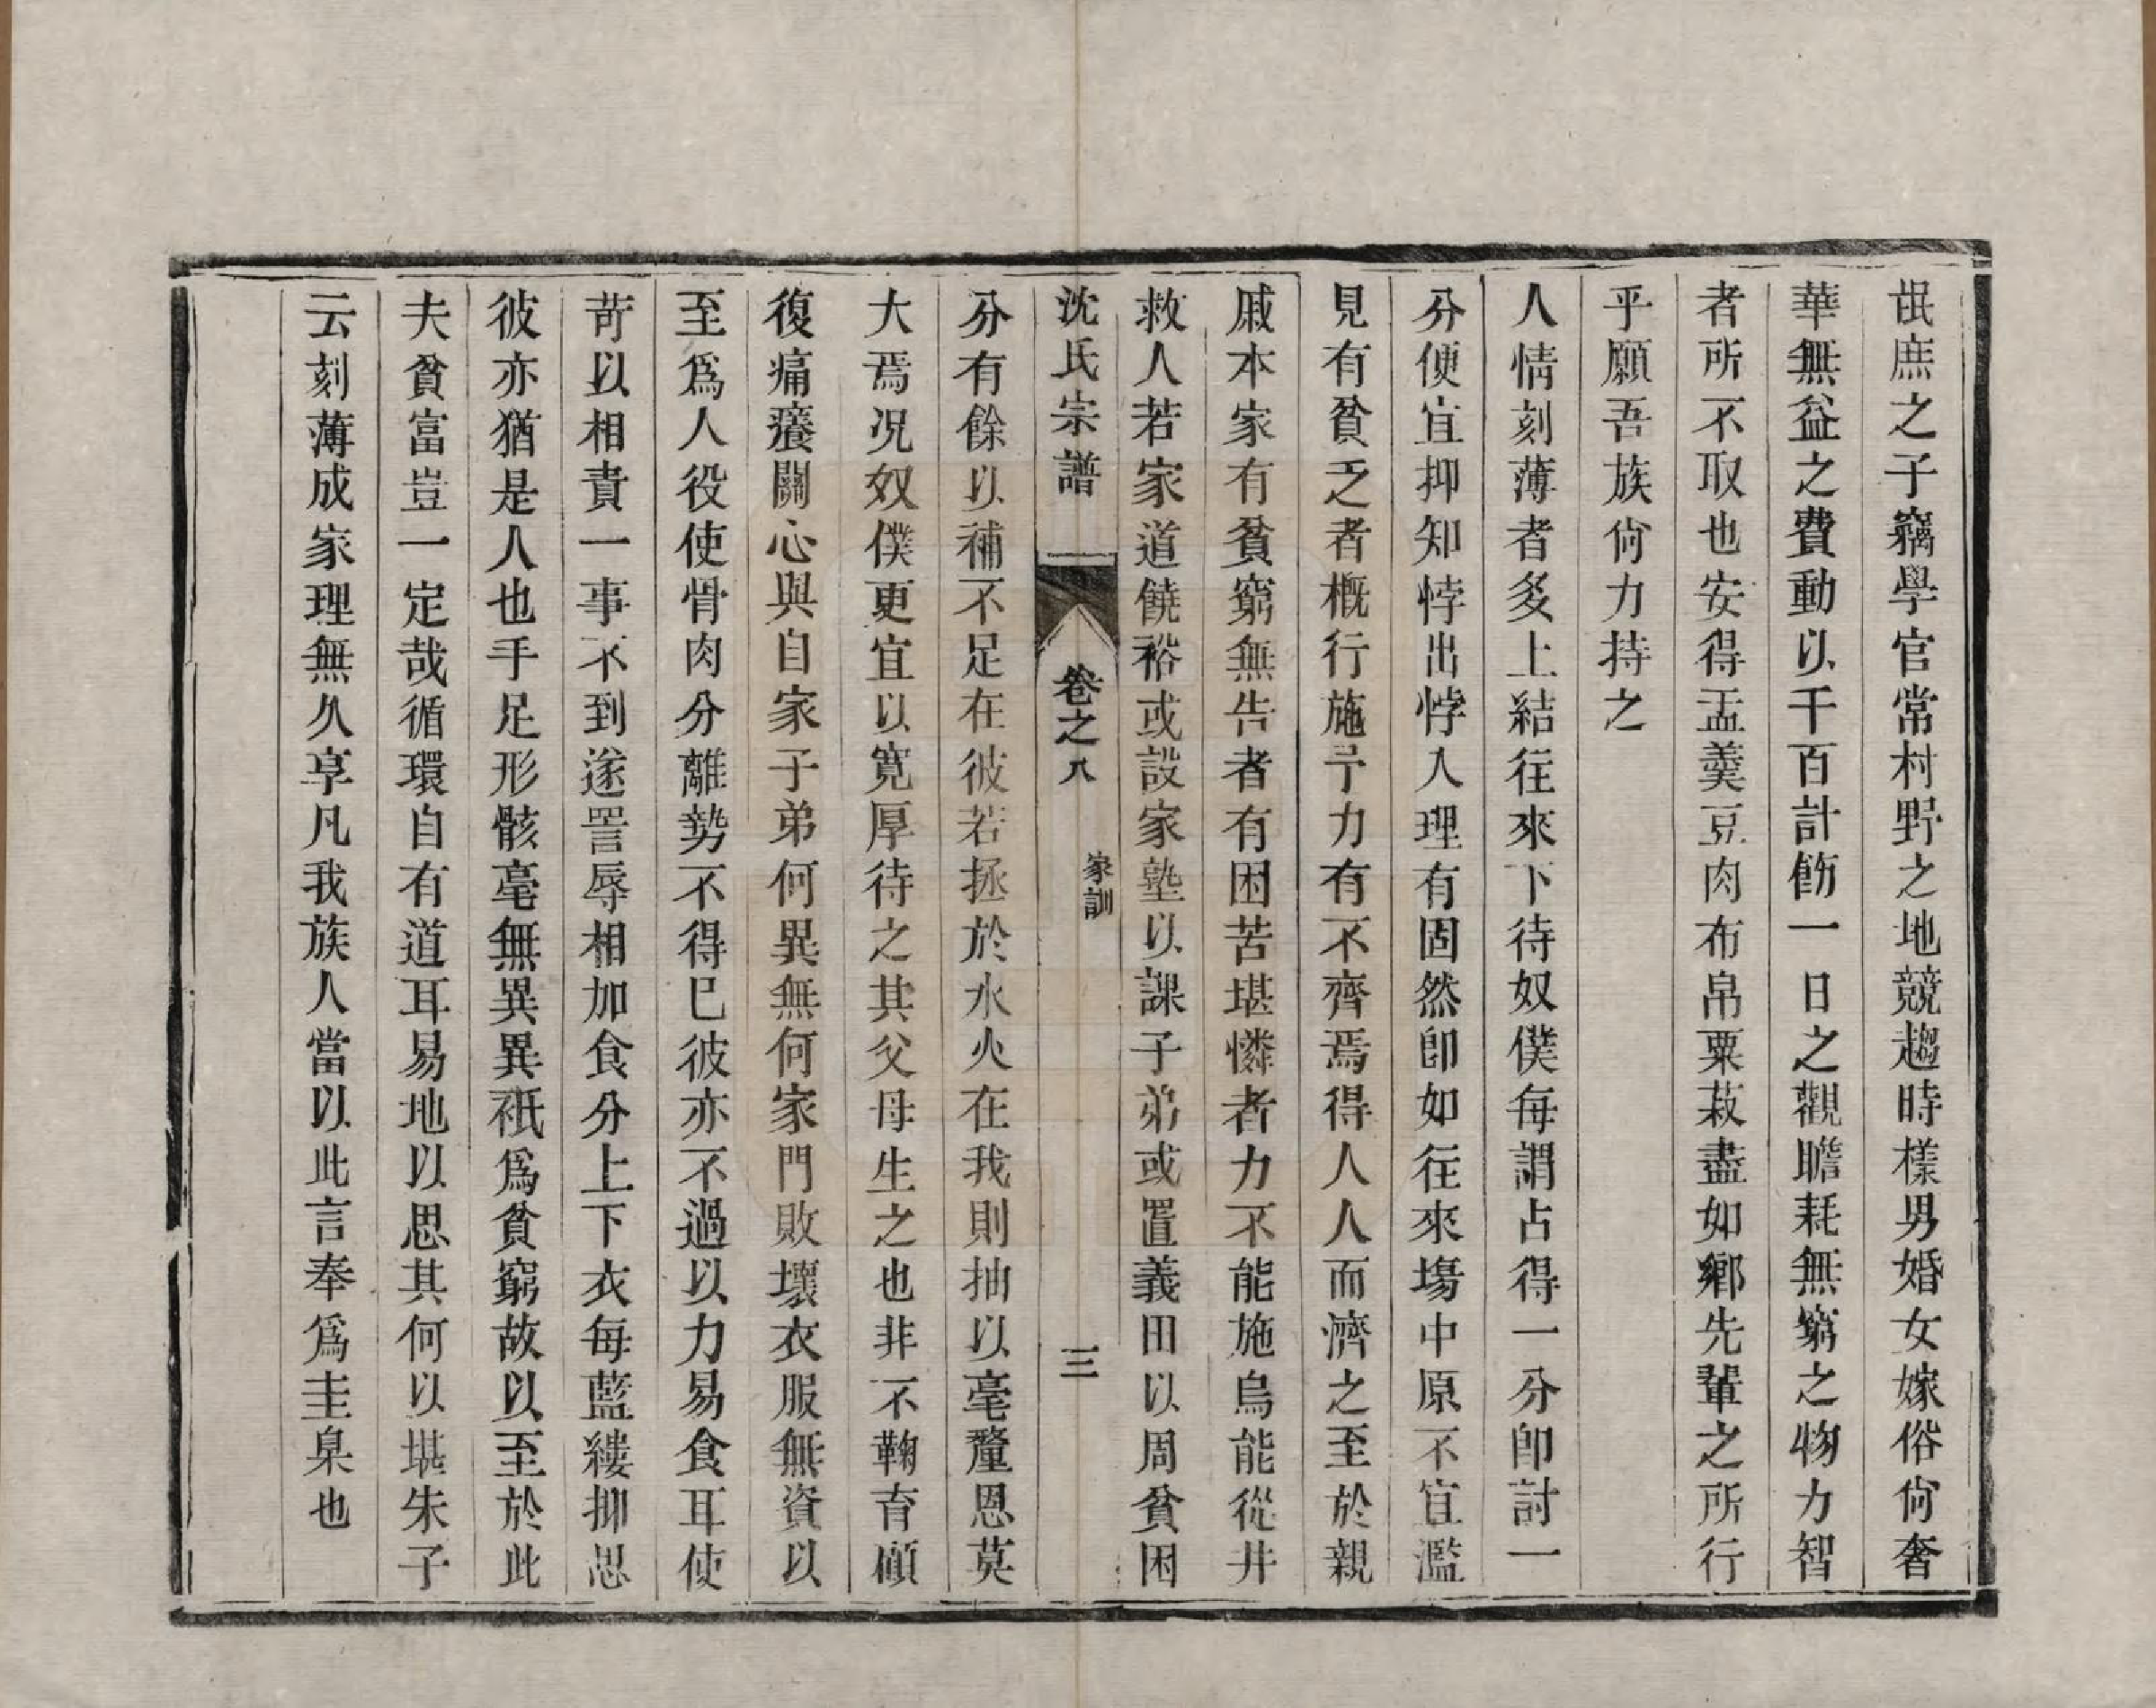 氓庶之子竊學官常村野之地競趨時樣男婚女嫁俗尙奢
華無益之費動以千百計飭一日之觀瞻耗無窮之物力智
者所不取也安得盂羹豆肉布帛粟菽盡如鄉先輩之所行
乎願吾族尙力持之
人情刻薄者多上結往來下待奴僕每謂占得一分卽討一
分便宜抑知悖出悖入理有固然卽如往來塲中原不宜濫
見有貧乏者槪行施予力有不齊焉得人人而濟之至於親
戚本家有貧窮無告者有困苦堪憐者力不能施烏能從井
救人若家道饒裕或設家塾以課子弟或置義田以周貧困
沈氏宗譜 卷之八 家訓 三
分有餘以補不足在彼若拯於水火在我則抽以毫釐恩莫
大焉况奴僕更宜以寬厚待之其父母生之也非不鞠育顧
復痛癢關心與自家子弟何異無何家門敗壞衣服無資以
至爲人役使骨肉分離勢不得已彼亦不過以力易食耳使
苛以相責一事不到遂詈辱相加食分上下衣每藍縷抑思
彼亦猶是人也手足形骸毫無異異祇爲貧窮故以至於此
夫貧富豈一定哉循環自有道耳易地以思其何以堪朱子
云刻薄成家理無久享凡我族人當以此言奉爲圭臬也